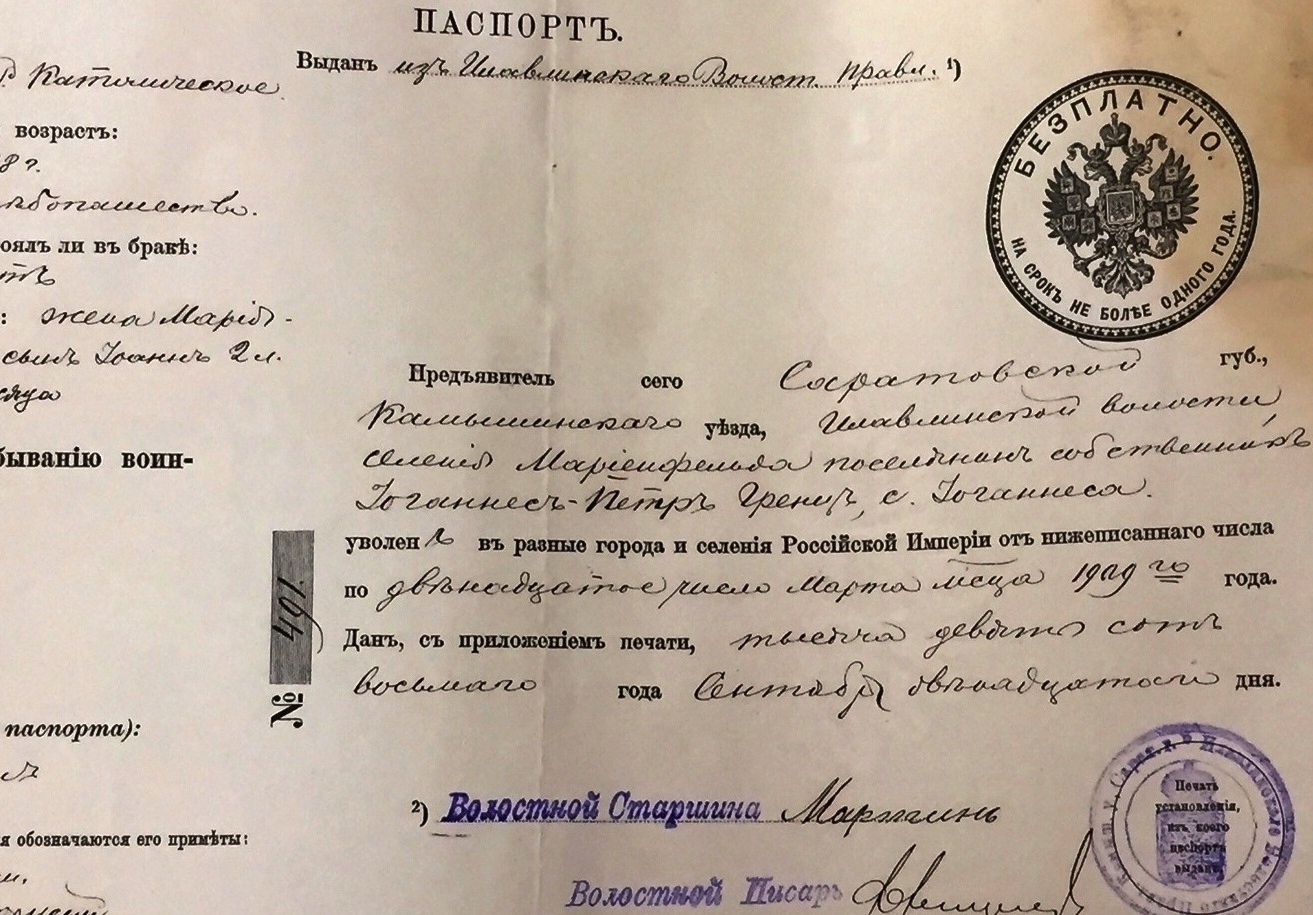 ПАСПОРТЪ.
Выданъ изъ Илавлинскаго Волост. Правл. ¹)
Католическое.
возрастъ:
8 г.
оялъ ли въ бракѣ:
: жена Марія -
сынъ Іоаннъ 2 л.
быванію воин-
паспорта):
я обозначаются его примѣты:
БЕЗПЛАТНО.
НА СРОКЪ НЕ БОЛѢЕ ОДНОГО ГОДА.
Предъявитель сего Саратовской губ.,
Камышинскаго уѣзда, Илавлинской волости,
селенія Маріенфельда поселянинъ собственникъ
Іоганнесъ-Петръ Гренцъ, с. Іоганнеса.
уволенъ въ разные города и селенія Россійской Имперіи отъ нижеписаннаго числа
по двѣнадцатое число Марта мсца 1909 го года.
Данъ, съ приложеніемъ печати, тысяча девять сотъ
восьмаго года Сентября двѣнадцатаго дня.
№ 491.
²) Волостной Старшина Мартинъ
Волостной Писарь
Печать
установленія,
изъ коего
паспортъ
выданъ